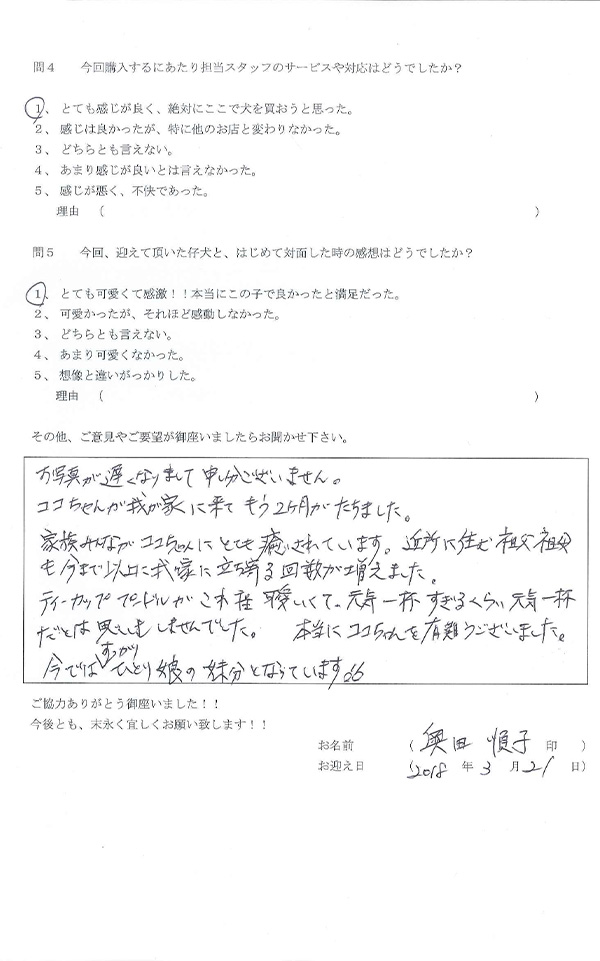 問4 今回購入するにあたり担当スタッフのサービスや対応はどうでしたか？
1、とても感じが良く、絶対にここで犬を買おうと思った。
2、感じは良かったが、特に他のお店と変わりなかった。
3、どちらとも言えない。
4、あまり感じが良いとは言えなかった。
5、感じが悪く、不快であった。
理由 （ ）
問5 今回、迎えて頂いた仔犬と、はじめて対面した時の感想はどうでしたか？
1、とても可愛くて感激！！本当にこの子で良かったと満足だった。
2、可愛かったが、それほど感動しなかった。
3、どちらとも言えない。
4、あまり可愛くなかった。
5、想像と違いがっかりした。
理由 （ ）
その他、ご意見やご要望が御座いましたらお聞かせ下さい。
お写真が遅くなりまして申し分ございません。
ココちゃんが我が家に来てもう2ヶ月がたちました。
家族みんながココちゃんにとても癒されています。近所に住む祖父祖父
も今まで以上に我が家に立ち寄る回数が増えました。
ティーカッププードルがこれ程愛いくて。元気一杯すぎるくらい元気一杯
だとは思いもしませんでした。 本当にココちゃんを有難うございました。
今ではすっかりひとり娘の妹分となっています
ご協力ありがとう御座いました！！
今後とも、末永く宜しくお願い致します！！
お名前 （ 奥田 順子 印 ）
お迎え日 （2018 年 3 月 21 日）